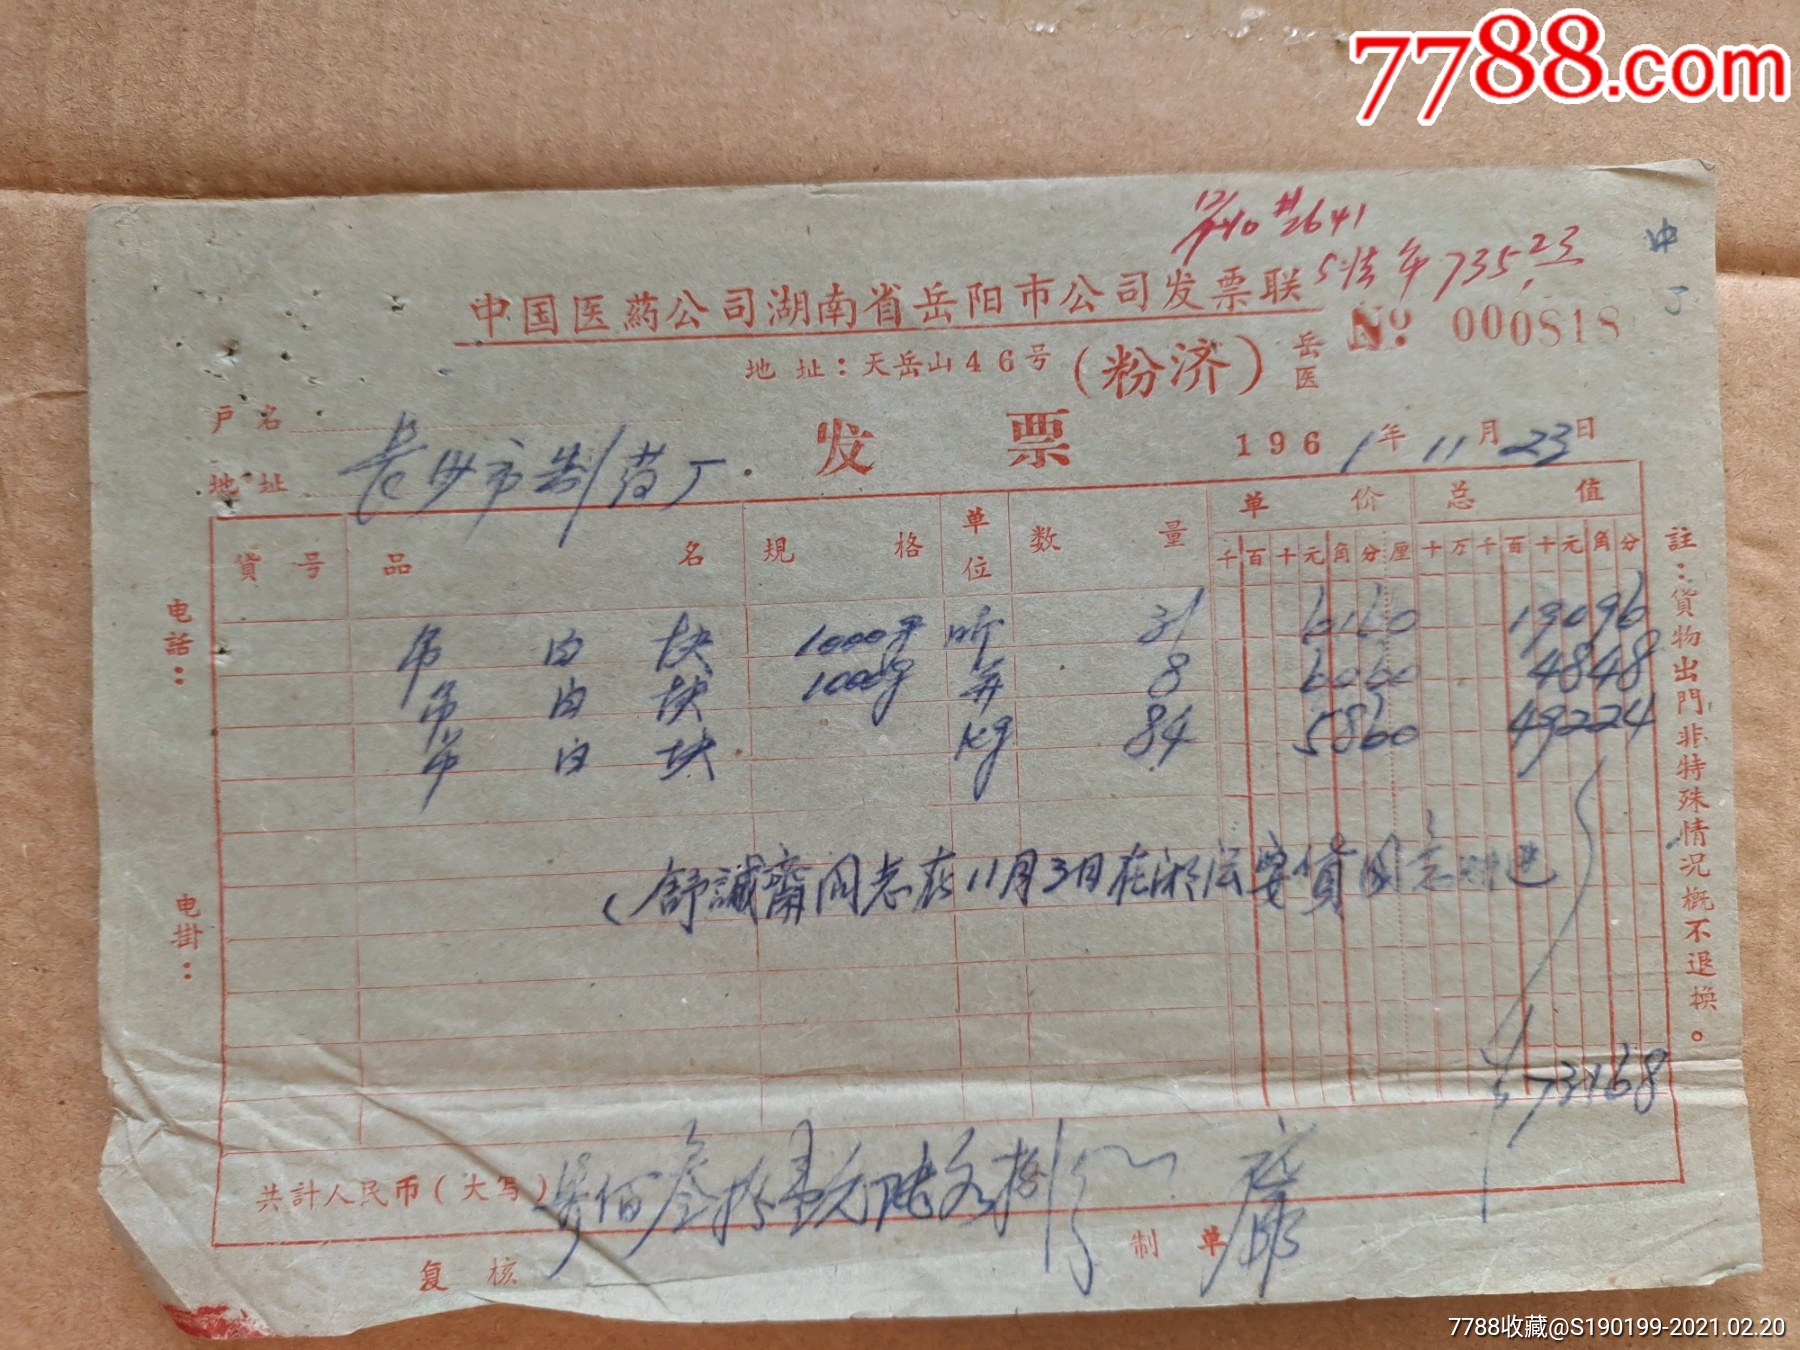 7788.com
12/40 #2641
中
中国医药公司湖南省岳阳市公司发票联
735.23
地址：天岳山46号（粉济）岳医 No. 000818
户名
发票
1961年11月23日
地址 长沙市制药厂
貨号 品名 規格 单位 数量 单价 总值
千百十元角分厘 十万千百十元角分
吊白块 1000g 听 31 6160 19096
吊白块 1000g 8 6060 4848
吊白块 kg 84 5860 49224
电話：
电掛：
註：貨物出門非特殊情况概不退换。
（舒諴齋同志在11月3日在
73168
共計人民币（大写） 柒佰叁拾壹元陆角捌分
复核
制单 廖
7788收藏@S190199-2021.02.20